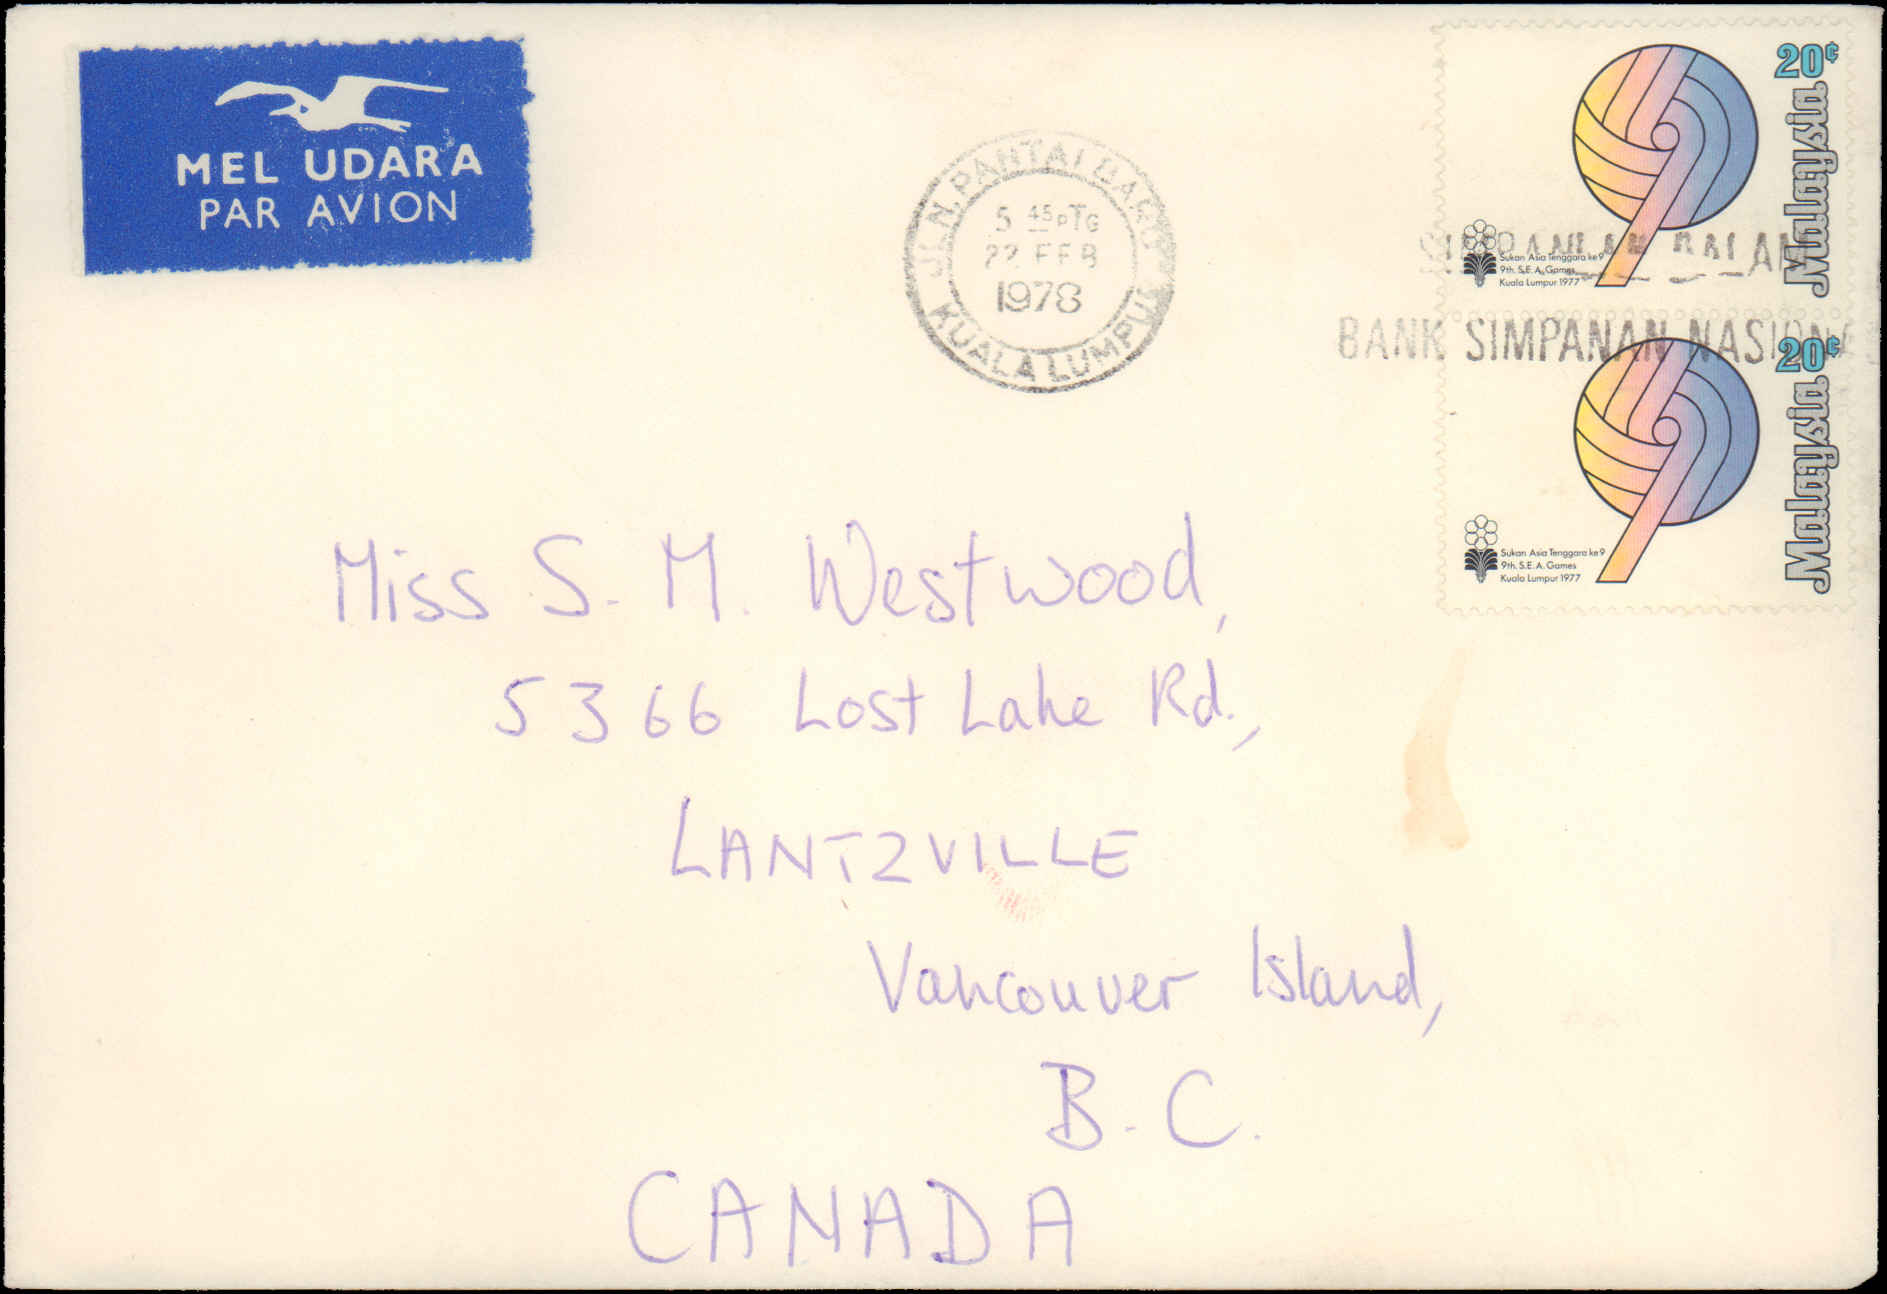 MEL UDARA
PAR AVION
JLN. PANTAI BARU
5 45 PTG
22 FEB
1978
KUALA LUMPUR
SIMPANLAH DALAM
BANK SIMPANAN NASIONAL
20¢
Malaysia
Sukan Asia Tenggara ke 9
9th. S.E.A. Games
Kuala Lumpur 1977
20¢
Malaysia
Sukan Asia Tenggara ke 9
9th. S.E.A. Games
Kuala Lumpur 1977
Miss S. M. Westwood,
5366 Lost Lake Rd.,
LANTZVILLE
Vancouver Island,
B.C.
CANADA